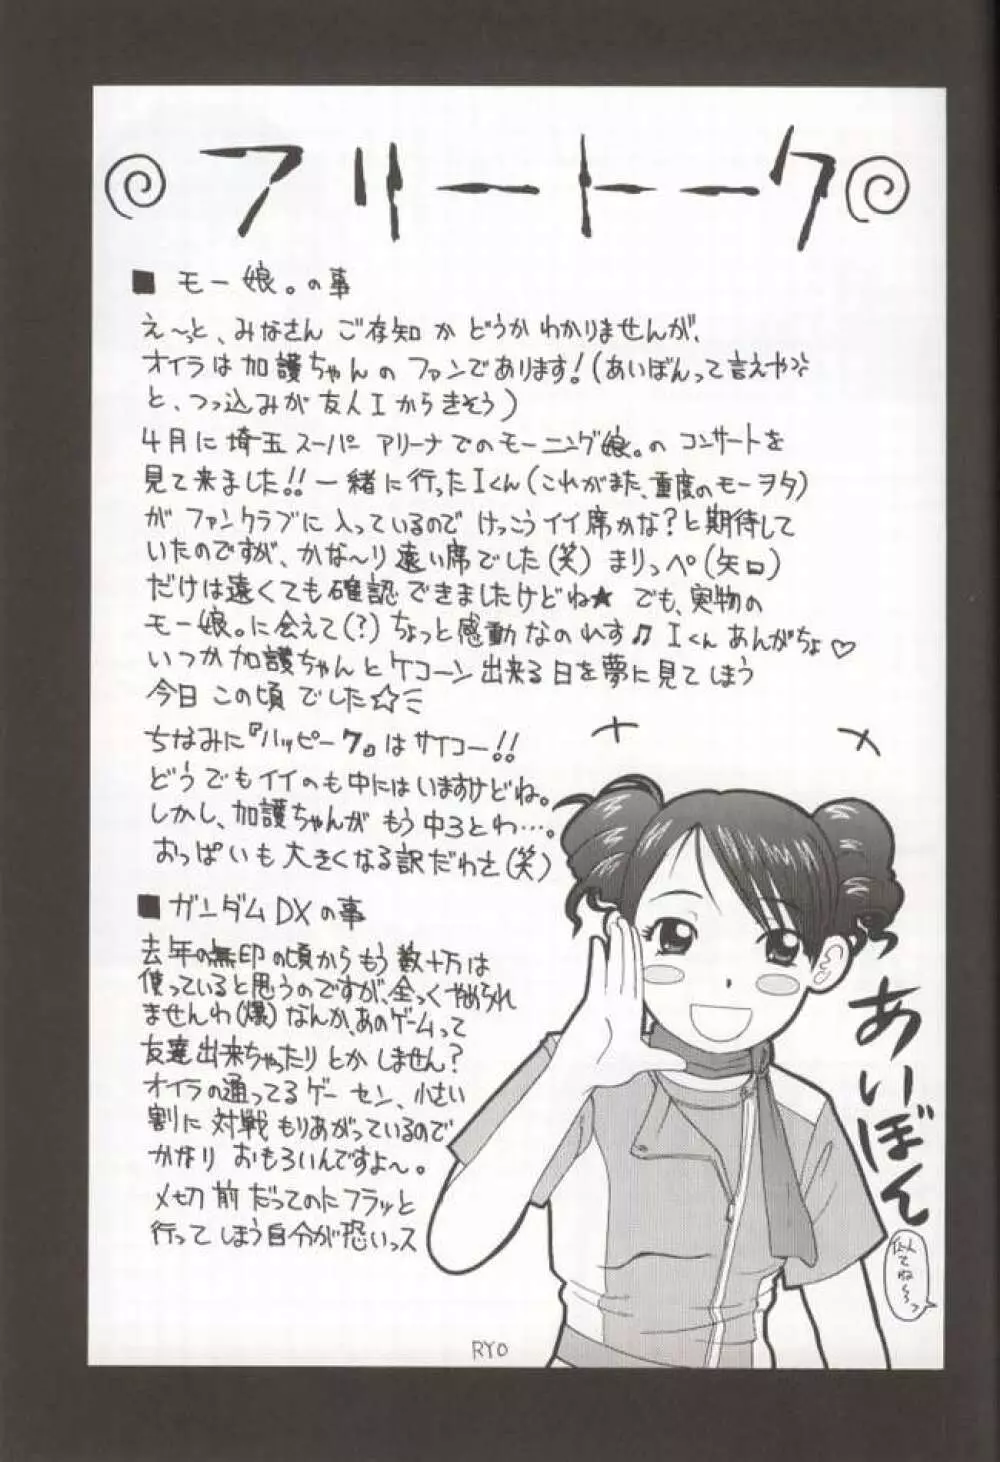 フリートーク
■ モー娘。の事
え〜っと、みなさん ご存知 か どうか わかりませんが、
オイラは加護ちゃんの ファンであります!(あいぼんって言えや
と、つっ込みが友人Iからきそう)
4月に埼玉スーパーアリーナでのモーニング娘。のコンサートを
見て来ました!!一緒に行ったIくん(これがまた、重度のモーヲタ)
がファンクラブに入っているのでけっこうイイ席かな?と期待して
いたのですが、かな〜り遠い席でした(笑) まりっぺ(矢口)
だけは遠くても確認できましたけどね★ でも、実物の
モー娘。に会えて(?)ちょっと感動なのれす♫ Iくんあんがちょ♡
いつか加護ちゃんとケコーン出来る日を夢に見てしまう
今日この頃でした☆
ちなみに『ハッピー7』はサイコー!!
どうでもイイのも中にはいますけどね。
しかし、加護ちゃんがもう中3とわ…。
おっぱいも大きくなる訳だわさ(笑)
■ ガンダムDXの事
去年の無印の頃からもう数十万は
使っていると思うのですが、全っくやめられ
ませんわ(爆)なんか、あのゲームって
友達出来ちゃったりとかしません?
オイラの通ってるゲーセン、小さい
割に対戦もりあがっているので
かなりおもろいんですよ〜。
〆切前だってのにフラッと
行ってしまう自分が恐いっス
あいぼん
似てね〜っ
RYO